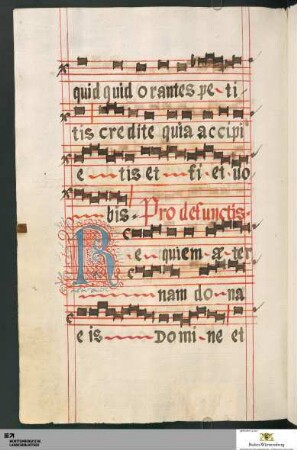 quid quid orantes pe-ti-
tis credite quia accipi
e-tis et fi-et uo
bis. Pro defunctis.
Re-quiem æ-ter
nam do-na
eis Domi-ne et